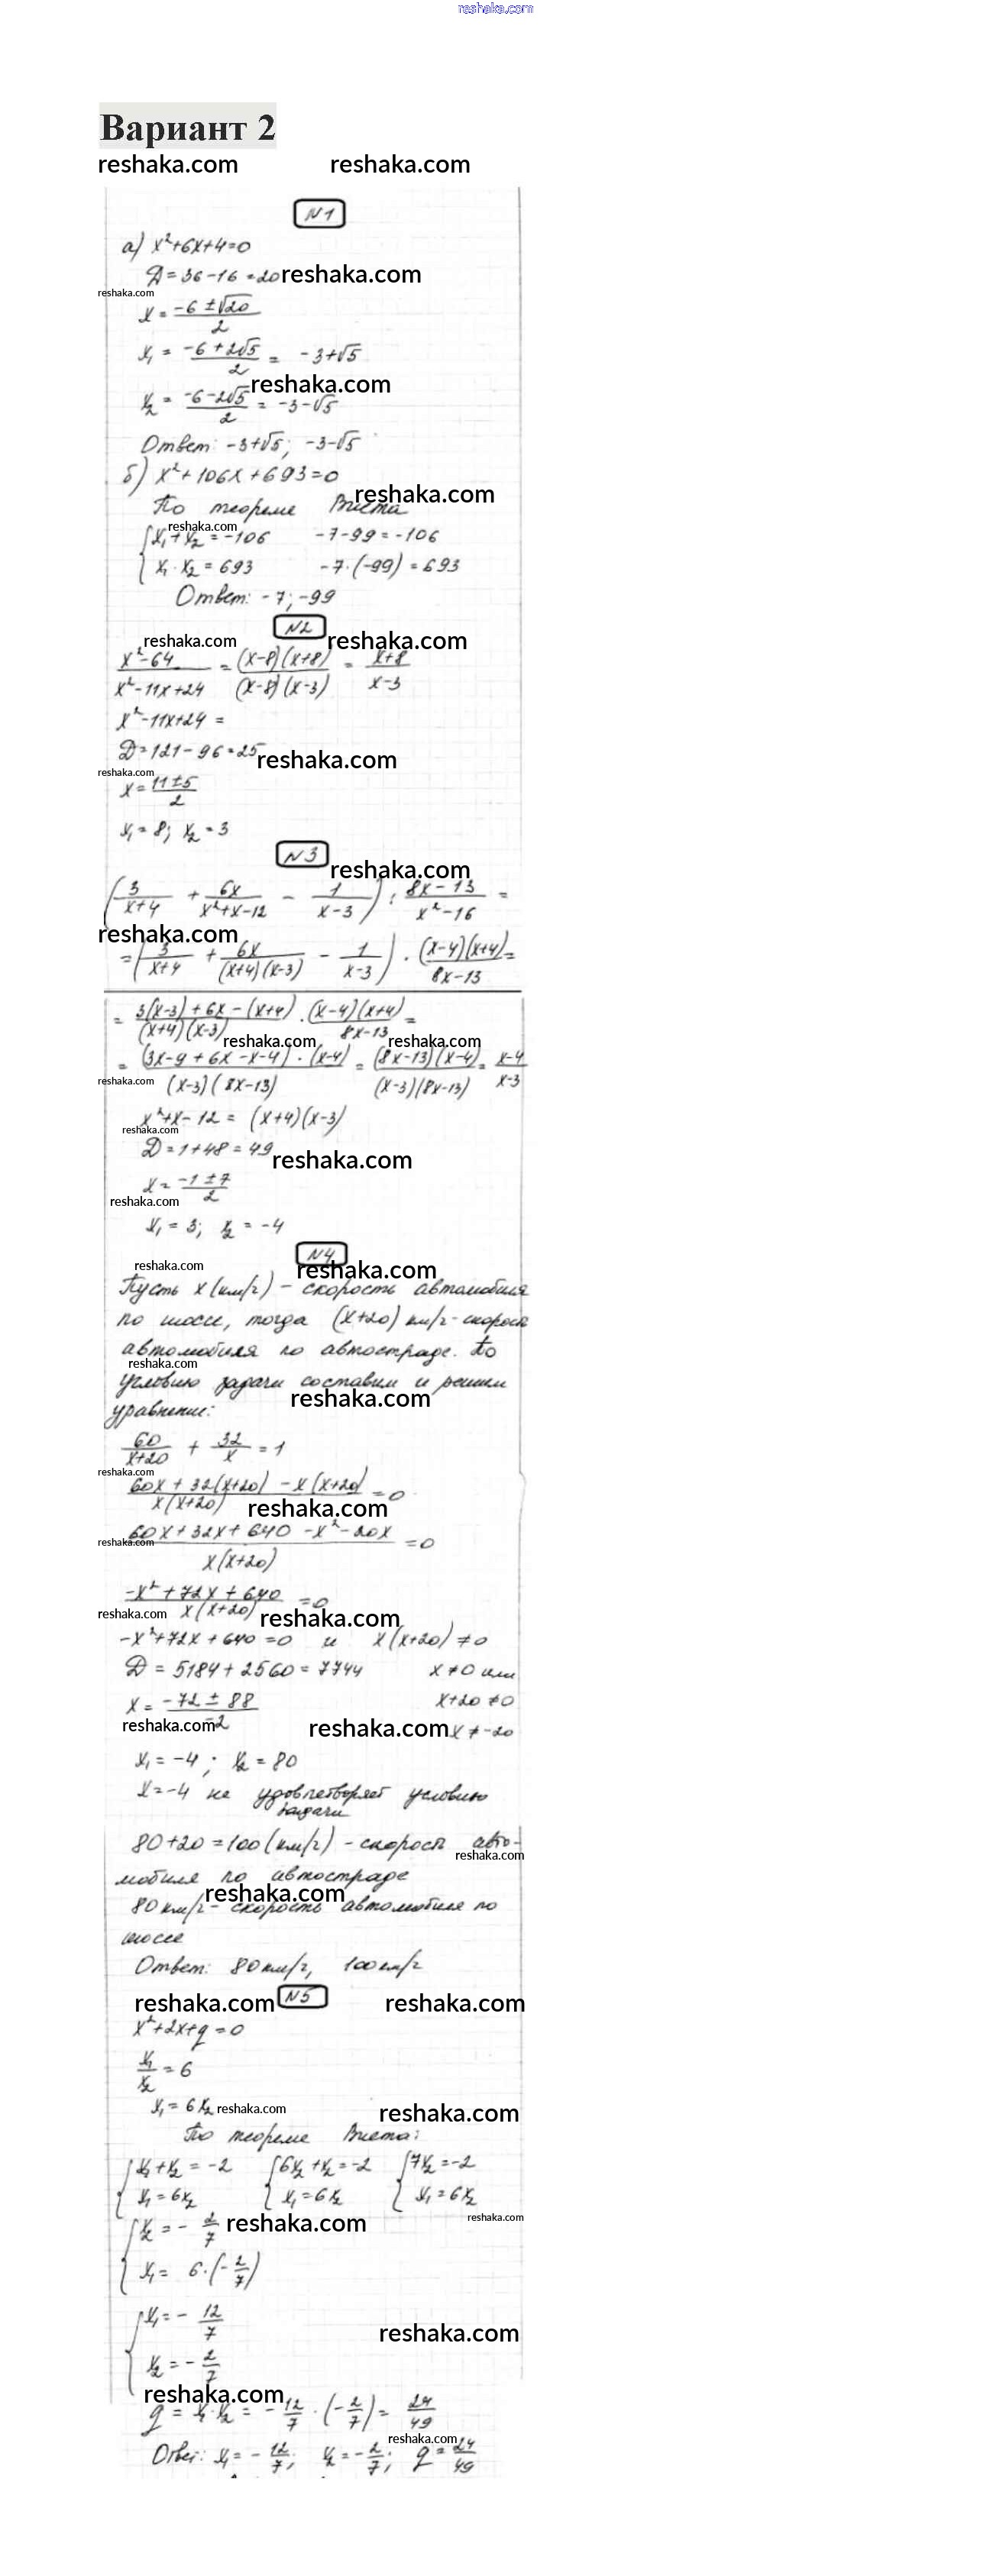 reshaka.com
Вариант 2
reshaka.com reshaka.com
N1
а) x²+6x+4=0
Д=36-16=20 reshaka.com
reshaka.com
x = (-6±√20)/2
x₁ = (-6+2√5)/2 = -3+√5
reshaka.com
x₂ = (-6-2√5)/2 = -3-√5
Ответ: -3+√5; -3-√5
б) x²+106x+693=0
reshaka.com
По теореме Виета
reshaka.com
{x₁+x₂=-106 -7-99=-106
x₁·x₂=693 -7·(-99)=693
Ответ: -7; -99
N2
reshaka.com reshaka.com
(x²-64)/(x²-11x+24) = ((x-8)(x+8))/((x-8)(x-3)) = (x+8)/(x-3)
x²-11x+24=
D=121-96=25
reshaka.com
reshaka.com
x=(11±5)/2
x₁=8; x₂=3
N3
reshaka.com
(3/(x+4) + 6x/(x²+x-12) - 1/(x-3)) : (8x-13)/(x²-16) =
reshaka.com
=(3/(x+4) + 6x/((x+4)(x-3)) - 1/(x-3)) · ((x-4)(x+4))/(8x-13) =
= (3(x-3)+6x-(x+4))/((x+4)(x-3)) · ((x-4)(x+4))/(8x-13) =
reshaka.com reshaka.com
= ((3x-9+6x-x-4)·(x-4))/((x-3)(8x-13)) = ((8x-13)(x-4))/((x-3)(8x-13)) = (x-4)/(x-3)
reshaka.com
x²+x-12=(x+4)(x-3)
reshaka.com
D=1+48=49
reshaka.com
x=(-1±7)/2
reshaka.com
x₁=3; x₂=-4
N4
reshaka.com reshaka.com
Пусть x (км/ч) - скорость автомобиля
по шоссе, тогда (x+20) км/ч - скорость
автомобиля по автостраде. По
reshaka.com
условию задачи составим и решим
reshaka.com
уравнение:
60/(x+20) + 32/x = 1
reshaka.com
(60x+32(x+20)-x(x+20))/(x(x+20)) =0
reshaka.com
(60x+32x+640-x²-20x)/(x(x+20)) =0
reshaka.com
(-x²+72x+640)/(x(x+20)) =0
reshaka.com reshaka.com
-x²+72x+640=0 и x(x+20)≠0
D=5184+2560=7744 x≠0 или
x=(-72±88)/(-2) x+20≠0
reshaka.com reshaka.com x≠-20
x₁=-4; x₂=80
x=-4 не удовлетворяет условию
задачи
80+20=100(км/ч) - скорость авто-
reshaka.com
мобиля по автостраде
reshaka.com
80 км/ч - скорость автомобиля по
шоссе
Ответ: 80 км/ч, 100 км/ч
reshaka.com N5 reshaka.com
x²+2x+q=0
x₁/x₂=6
x₁=6x₂ reshaka.com reshaka.com
По теореме Виета:
{x₁+x₂=-2 {6x₂+x₂=-2 {7x₂=-2
x₁=6x₂ x₁=6x₂ x₁=6x₂
reshaka.com
{x₂=-2/7 reshaka.com
x₁=6·(-2/7)
{x₁=-12/7
reshaka.com
x₂=-2/7
reshaka.com
q=x₁·x₂=-12/7·(-2/7)=24/49
reshaka.com
Ответ: x₁=-12/7; x₂=-2/7; q=24/49